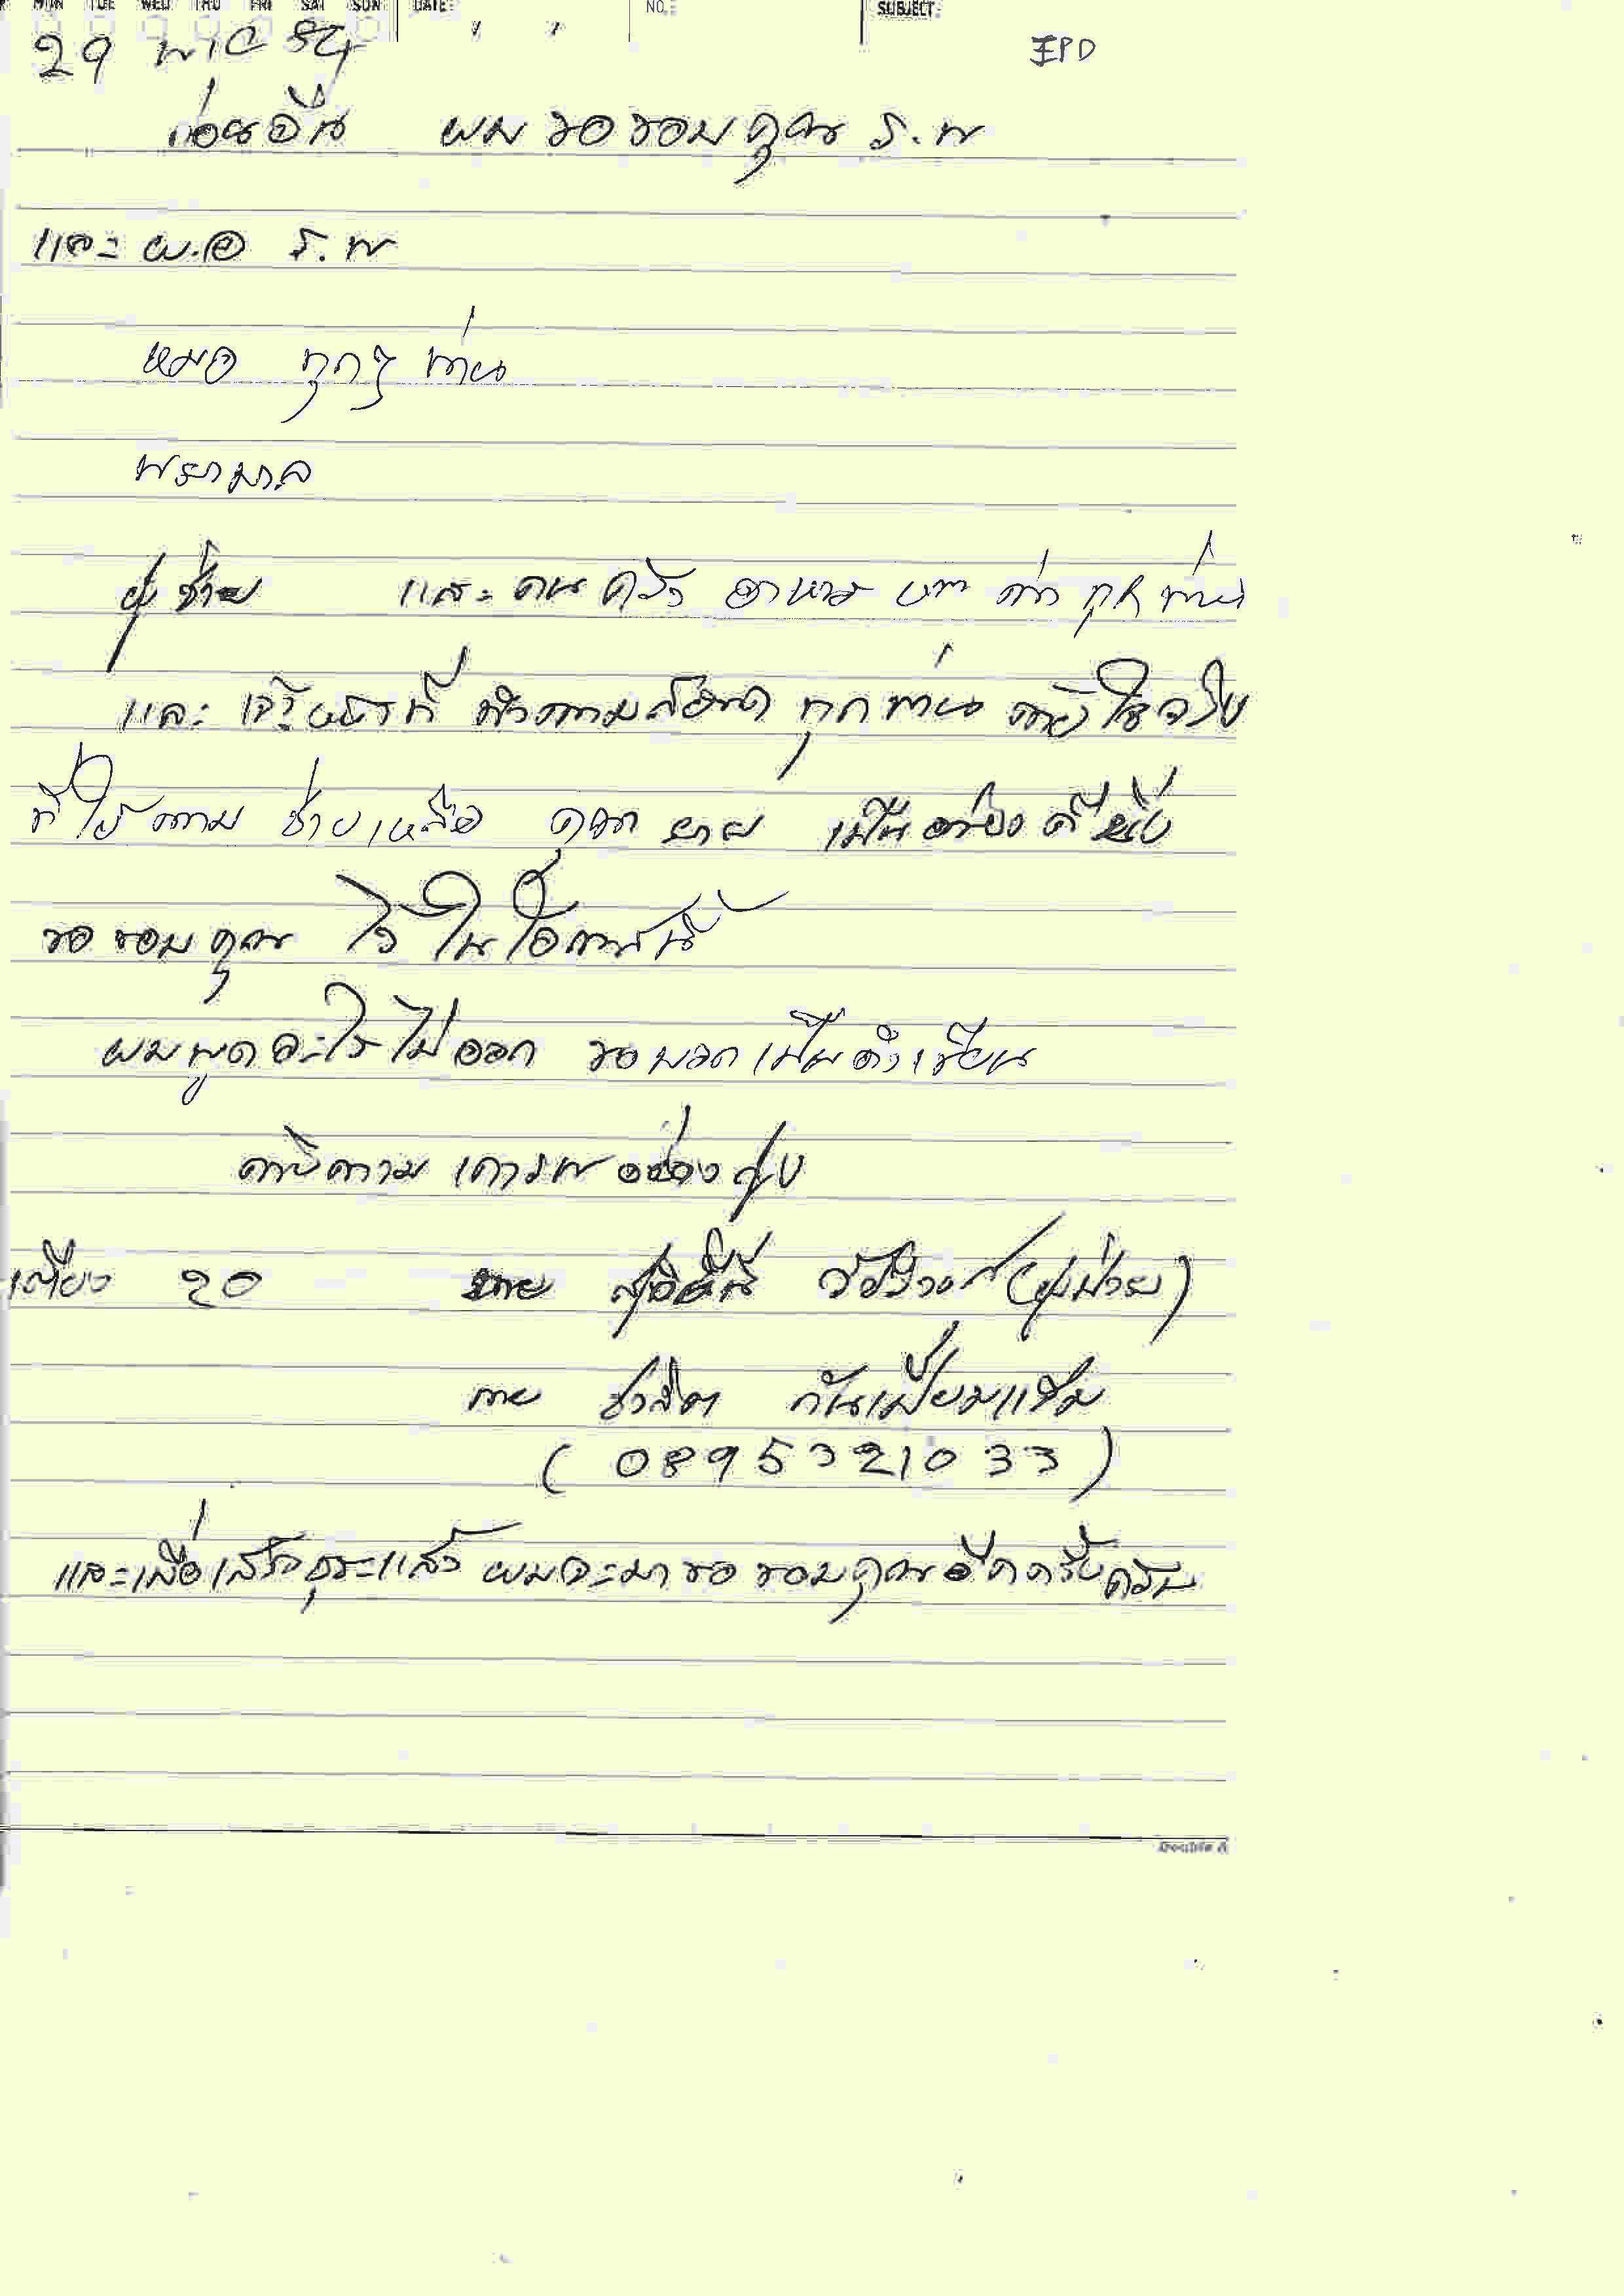 MON TUE WED THU FRI SAT SUN DATE: / / NO.: SUBJECT:
29 พ.ค 54
IPD
ก่อนอื่น ผม ขอขอบคุณ ร.พ
และ ผ.อ ร.พ
หมอ ทุกๆ ท่าน
พยาบาล
ผู้ช่วย และ คน ครัว อาหาร ทุกท่าน
และ เจ้าหน้าที่ ทำความสะอาด ทุกท่าน จริง
ที่ให้ความ ช่วยเหลือ ดูแล ยาย เป็นอย่างดียิ่ง
ขอขอบคุณ ไว้ในโอกาสนี้
ผมพูดอะไรไม่ออก ขอบอกเป็นตัวเขียน
ด้วยความ เคารพ อย่างสูง
เตียง 20 ยาย (ผู้ป่วย)
นาย ชวลิต
(0895321033)
และเมื่อเสร็จธุระแล้ว ผมจะมาขอขอบคุณอีกครั้งครับ
Double A